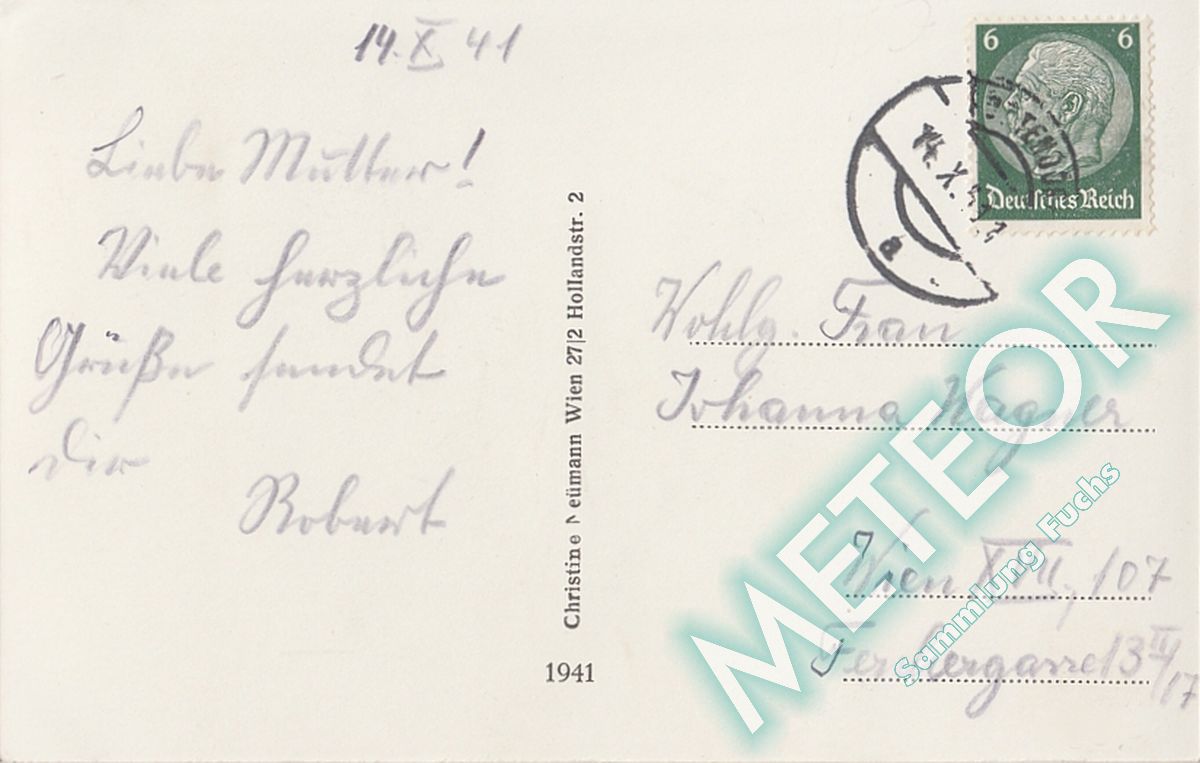 14. X. 41
Liebe Mutter!
Viele herzliche
Grüße sendet
dir
Robert
Christine Neumann Wien 27|2 Hollandstr. 2
1941
6 6
Deutsches Reich
14. X. 41
a
Wohlg. Frau
Johanna Wagner
Wien XVII, /107
13 II/17
METEOR
Sammlung Fuchs